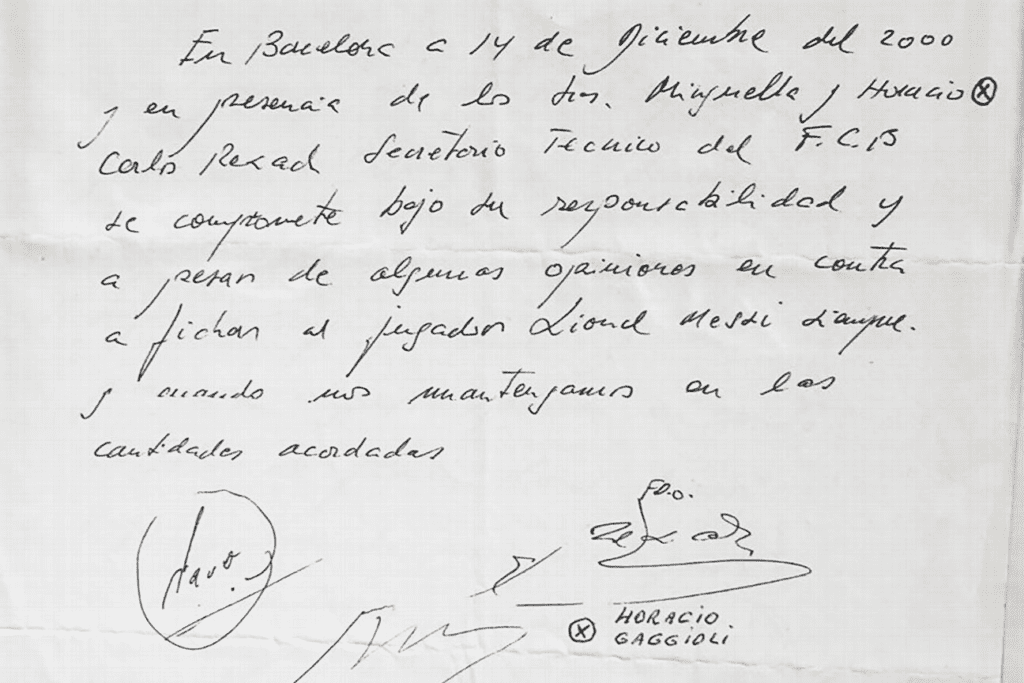 En Barcelona a 14 de Diciembre del 2000
y en presencia de los Sres. Minguella y Horacio ⓧ
Carlos Rexach Secretario Tecnico del F.C.B
se compromete bajo su responsabilidad y
a pesar de algunas opiniones en contra
a fichar al jugador Lionel Messi siempre.
y cuando nos mantengamos en las
cantidades acordadas
FDO.
ⓧ HORACIO
GAGGIOLI